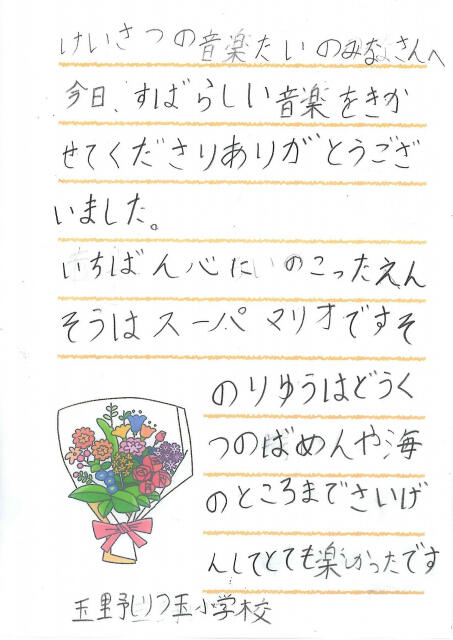 けいさつの音楽たいのみなさんへ
今日、すばらしい音楽をきか
せてくださりありがとうござ
いました。
いちばん心にのこったえん
そうはスーパマリオですそ
のりゆうはどうく
つのばめんや海
のところまでさいげ
んしてとても楽しかったです
玉里野りつ玉小学校